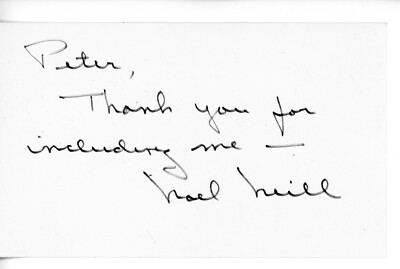 Peter,
Thank you for
including me —
Noel Neill